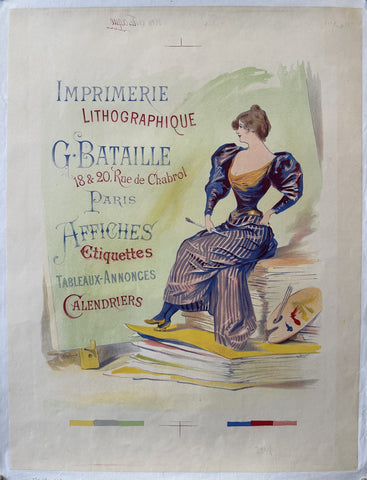 IMPRIMERIE
LITHOGRAPHIQUE
G. BATAILLE
18 & 20. Rue de Chabrol
PARIS
AFFICHES
Etiquettes
TABLEAUX-ANNONCES
CALENDRIERS